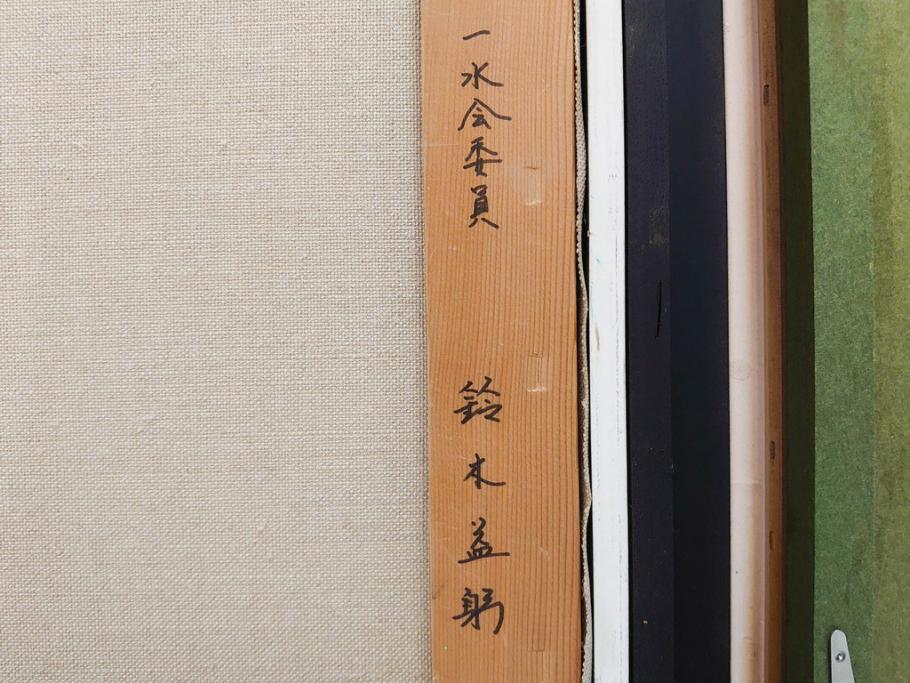 一水会委員
鈴木益躬